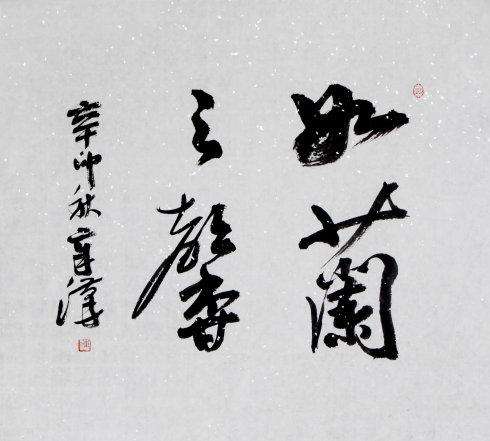 如蘭
之馨
辛卯秋